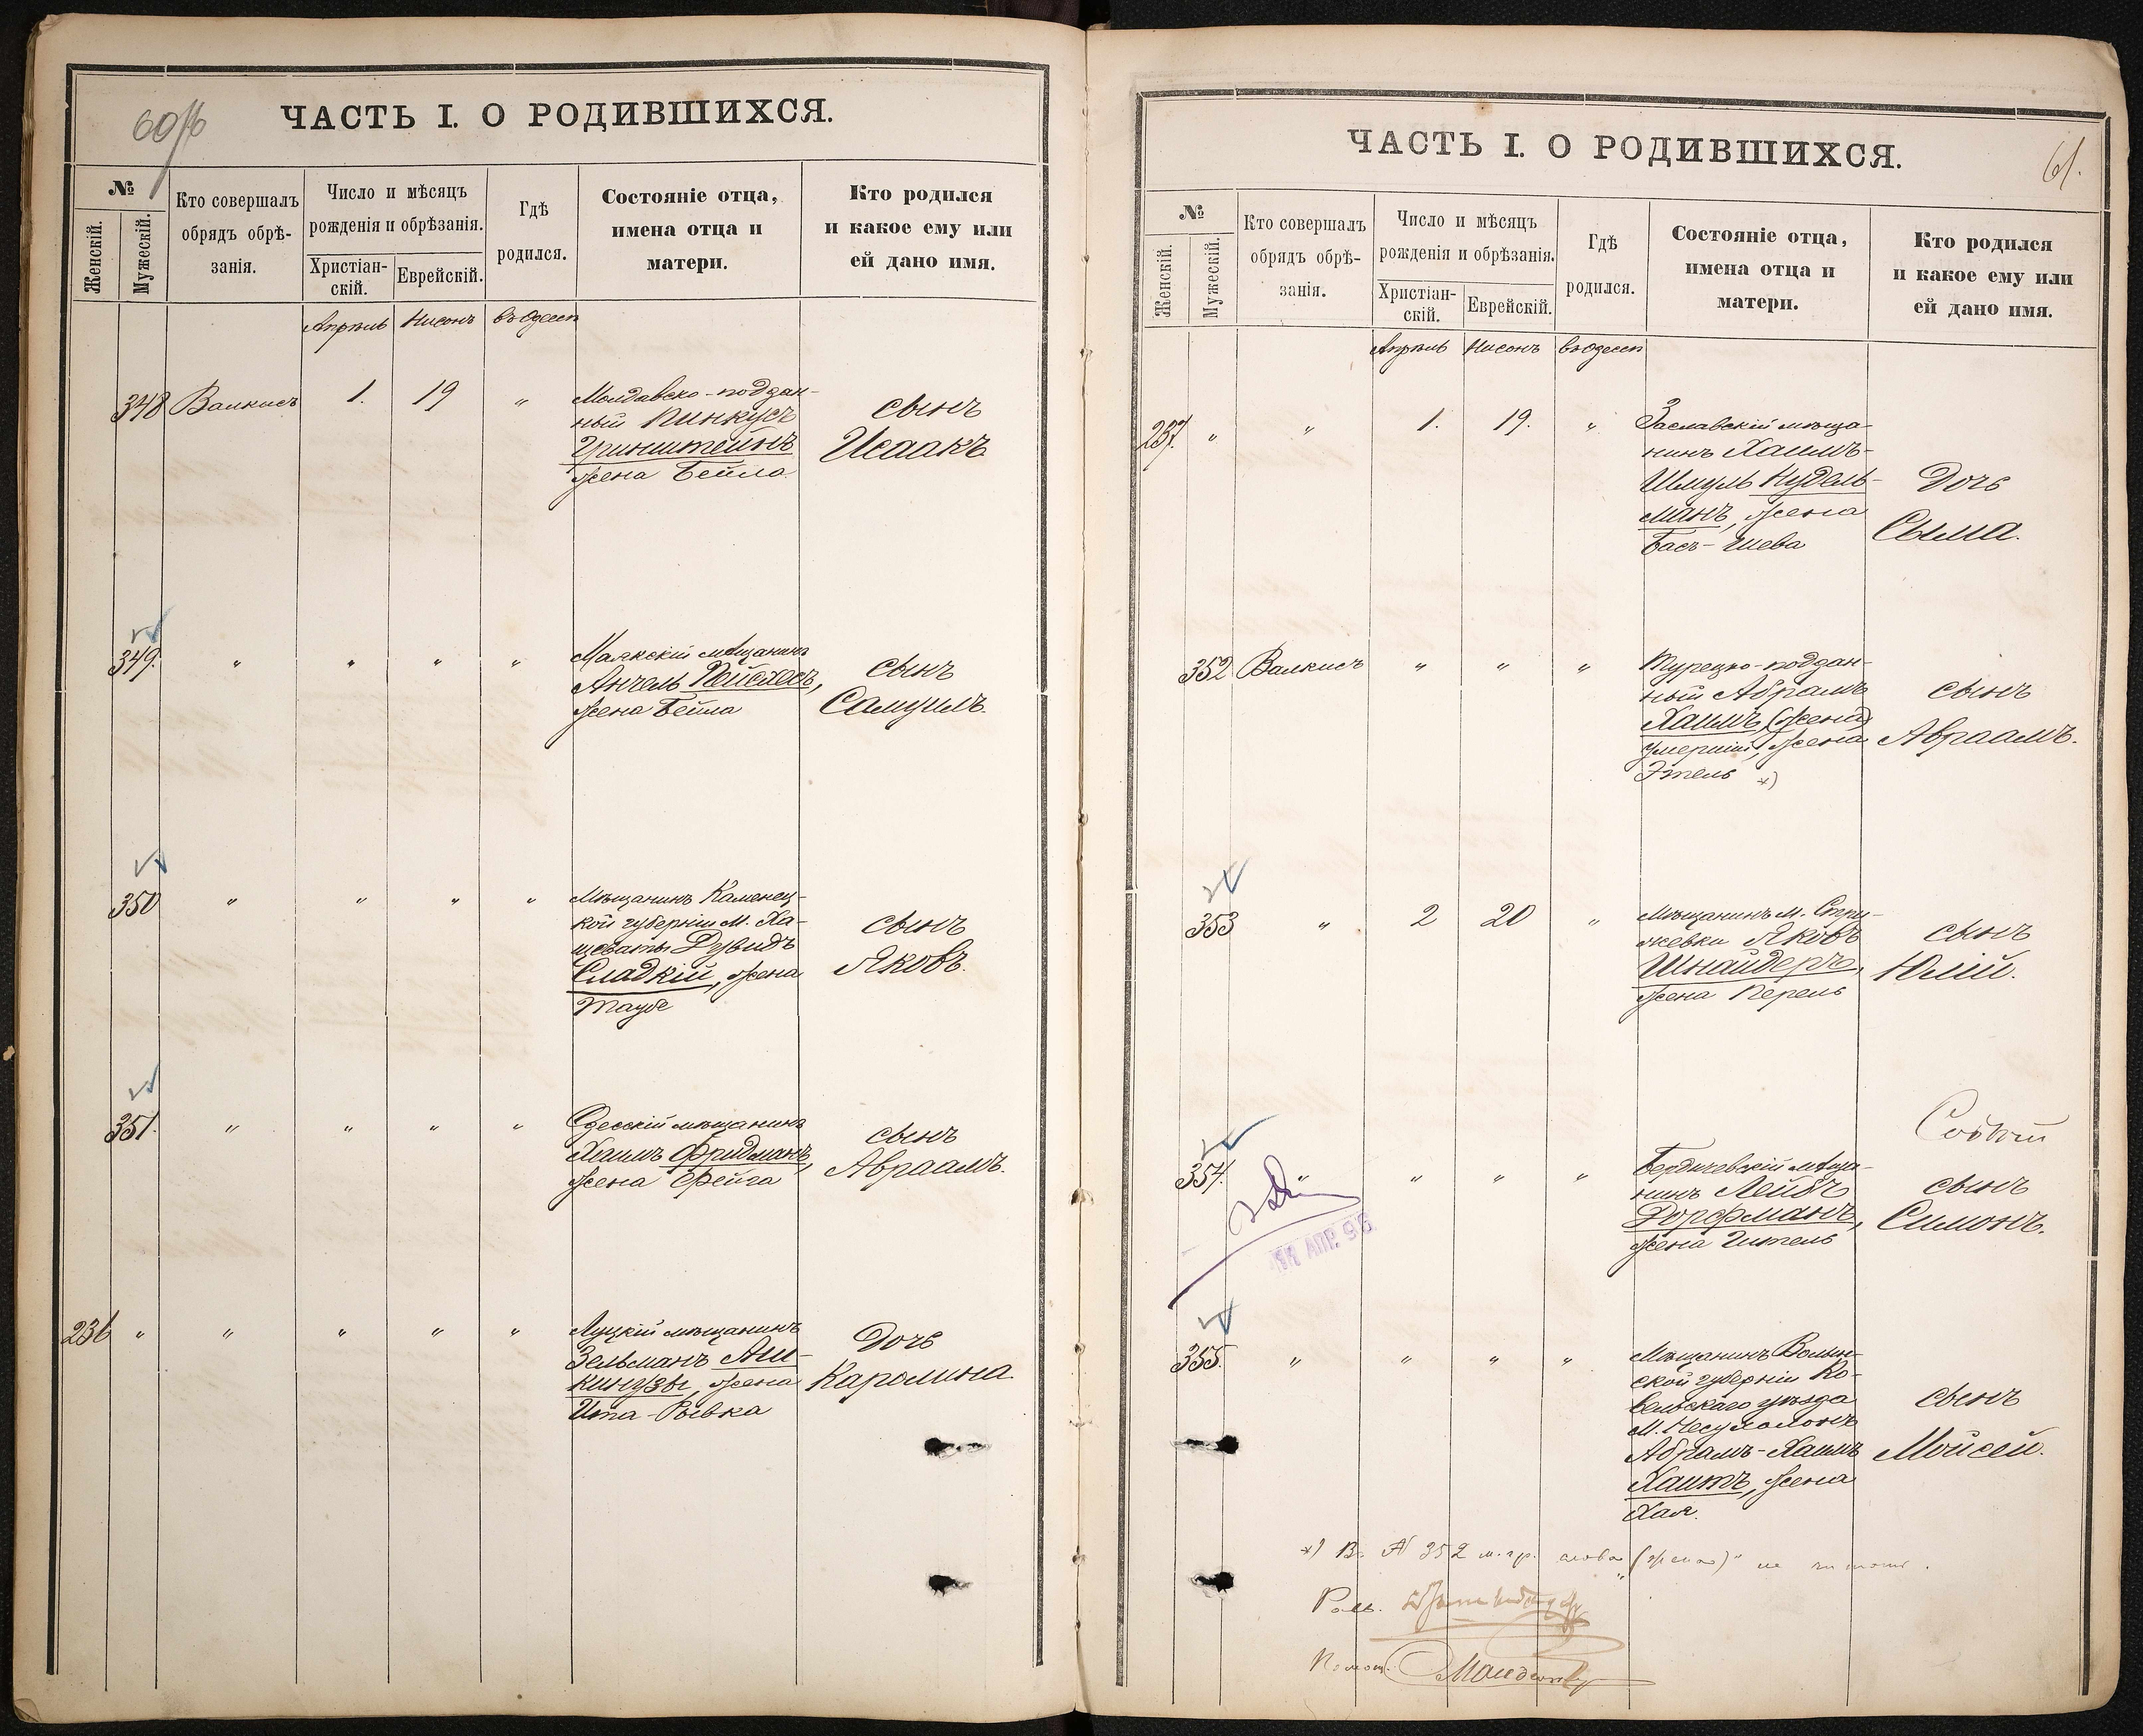 60об
ЧАСТЬ I. О РОДИВШИХСЯ.
№
Женскій.
Мужескій.
Кто совершалъ
обрядъ обрѣ-
занія.
Число и мѣсяцъ
рожденія и обрѣзанія.
Христіан-
скій.
Еврейскій.
Гдѣ
родился.
Состояніе отца,
имена отца и
матери.
Кто родился
и какое ему или
ей дано имя.
Апрѣль Нисонъ въ Одессѣ
348 Валкисъ 1. 19 "
Молдавско-поддан-
ный Пинкусъ
Гринштейнъ
жена Бейла
сынъ
Исаакъ
349. " " " "
Маякскій мѣщанинъ
Анчель Пейсхесъ,
жена Бейла
сынъ
Самуилъ.
350 " " " "
Мѣщанинъ Каменец-
кой губерніи М. Ха-
щеваты Дувидъ
Сладкій, жена
Таубе
сынъ
Яковъ.
351. " " " "
Одесскій мѣщанинъ
Хаимъ Фридманъ,
жена Фейга
сынъ
Авраамъ.
236 " " " " "
Луцкій мѣщанинъ
Зельманъ Аш-
кинузы, жена
Ита-Рывка
Дочь
Каролина
61.
ЧАСТЬ I. О РОДИВШИХСЯ.
№
Женскій.
Мужескій.
Кто совершалъ
обрядъ обрѣ-
занія.
Число и мѣсяцъ
рожденія и обрѣзанія.
Христіан-
скій.
Еврейскій.
Гдѣ
родился.
Состояніе отца,
имена отца и
матери.
Кто родился
и какое ему или
ей дано имя.
Апрѣль Нисонъ въ Одессѣ
237. " " 1. 19. "
Заславскій мѣща-
нинъ Хаимъ-
Шмуль Нудель-
манъ, жена
Бась-Шева
Дочь
Сыма.
352 Валкисъ " " "
Турецко-поддан-
ный Абрамъ
Хаимъ, (жена)
умершій, жена
Этель *)
сынъ
Авраамъ.
353 " 2 20 "
Мѣщанинъ М. Стри-
жевки Яковъ
Шнайдеръ,
жена Перель
сынъ
Юлій.
354. " " " "
АПР. 96
Бердичевскій мѣща-
нинъ Лейбъ
Дорфманъ,
жена Гитель
сынъ
Симонъ.
355. " " " "
Мѣщанинъ Волын-
ской губерніи Ко-
вельскаго уѣзда
М.
Абрамъ-Хаимъ
Хаитъ, жена
Хая.
сынъ
Мойсей.
*) Въ № 352 м. гр. слово „(жена)" не читать.
Помощ.